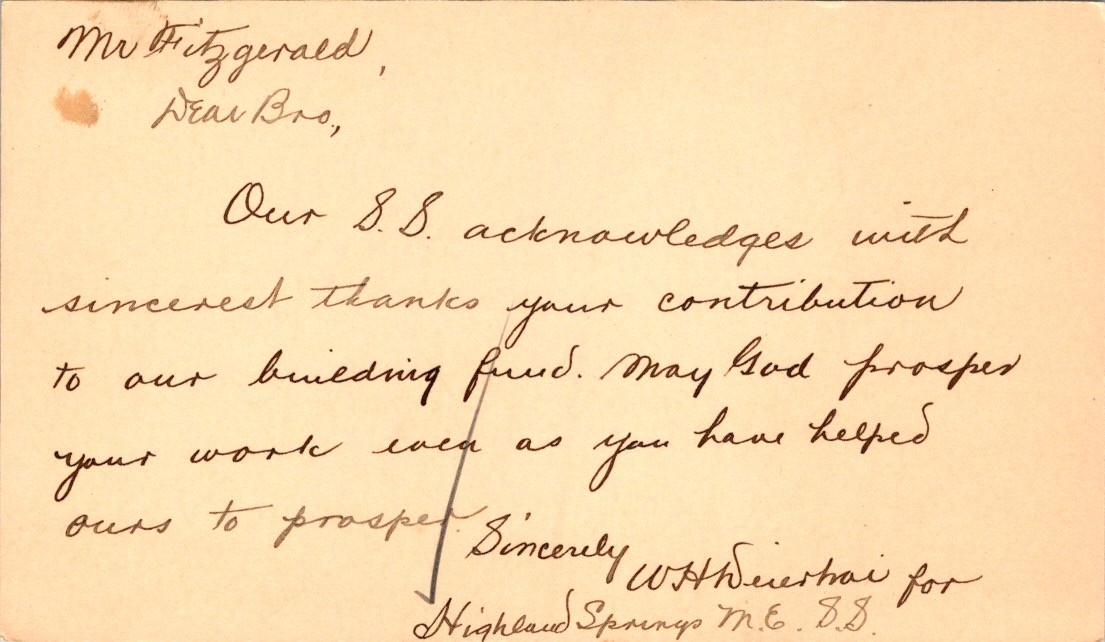 Mr Fitzgerald,
Dear Bro.,
Our S.S. acknowledges with
sincerest thanks your contribution
to our building fund. May God prosper
your work even as you have helped
ours to prosper.
Sincerely
W H for
Highland Springs M.E. S.S.